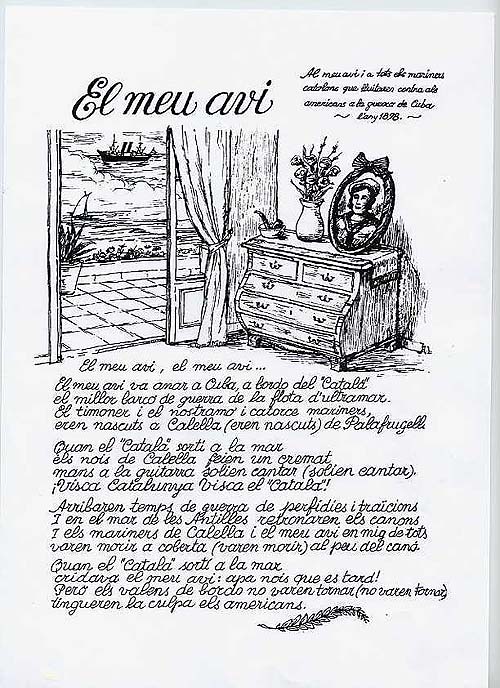 El meu avi
Al meu avi i a tots els mariners
catalans que lluitaren contra els
americans a la guerra de Cuba
~ l'any 1898. ~
El meu avi, el meu avi...
El meu avi va anar a Cuba, a bordo del "Català"
el millor barco de guerra de la flota d'ultramar.
El timoner i el nostramo i catorce mariners,
eren nascuts a Calella (eren nascuts) de Palafrugell.
Quan el "Català" sortí a la mar
els nois de Calella feien un cremat,
mans a la guitarra solien cantar (solien cantar).
¡Visca Catalunya Visca el "Català"!
Arribaren temps de guerra de perfídies i traïcions
I en el mar de les Antilles retronaren els canons
I els mariners de Calella i el meu avi en mig de tots
varen morir a coberta (varen morir) al peu del canó.
Quan el "Català" sortí a la mar
cridava el meu avi: apa nois que es tard!
Però els valens de bordo no varen tornar (no varen tornar)
tingueren la culpa els americans.